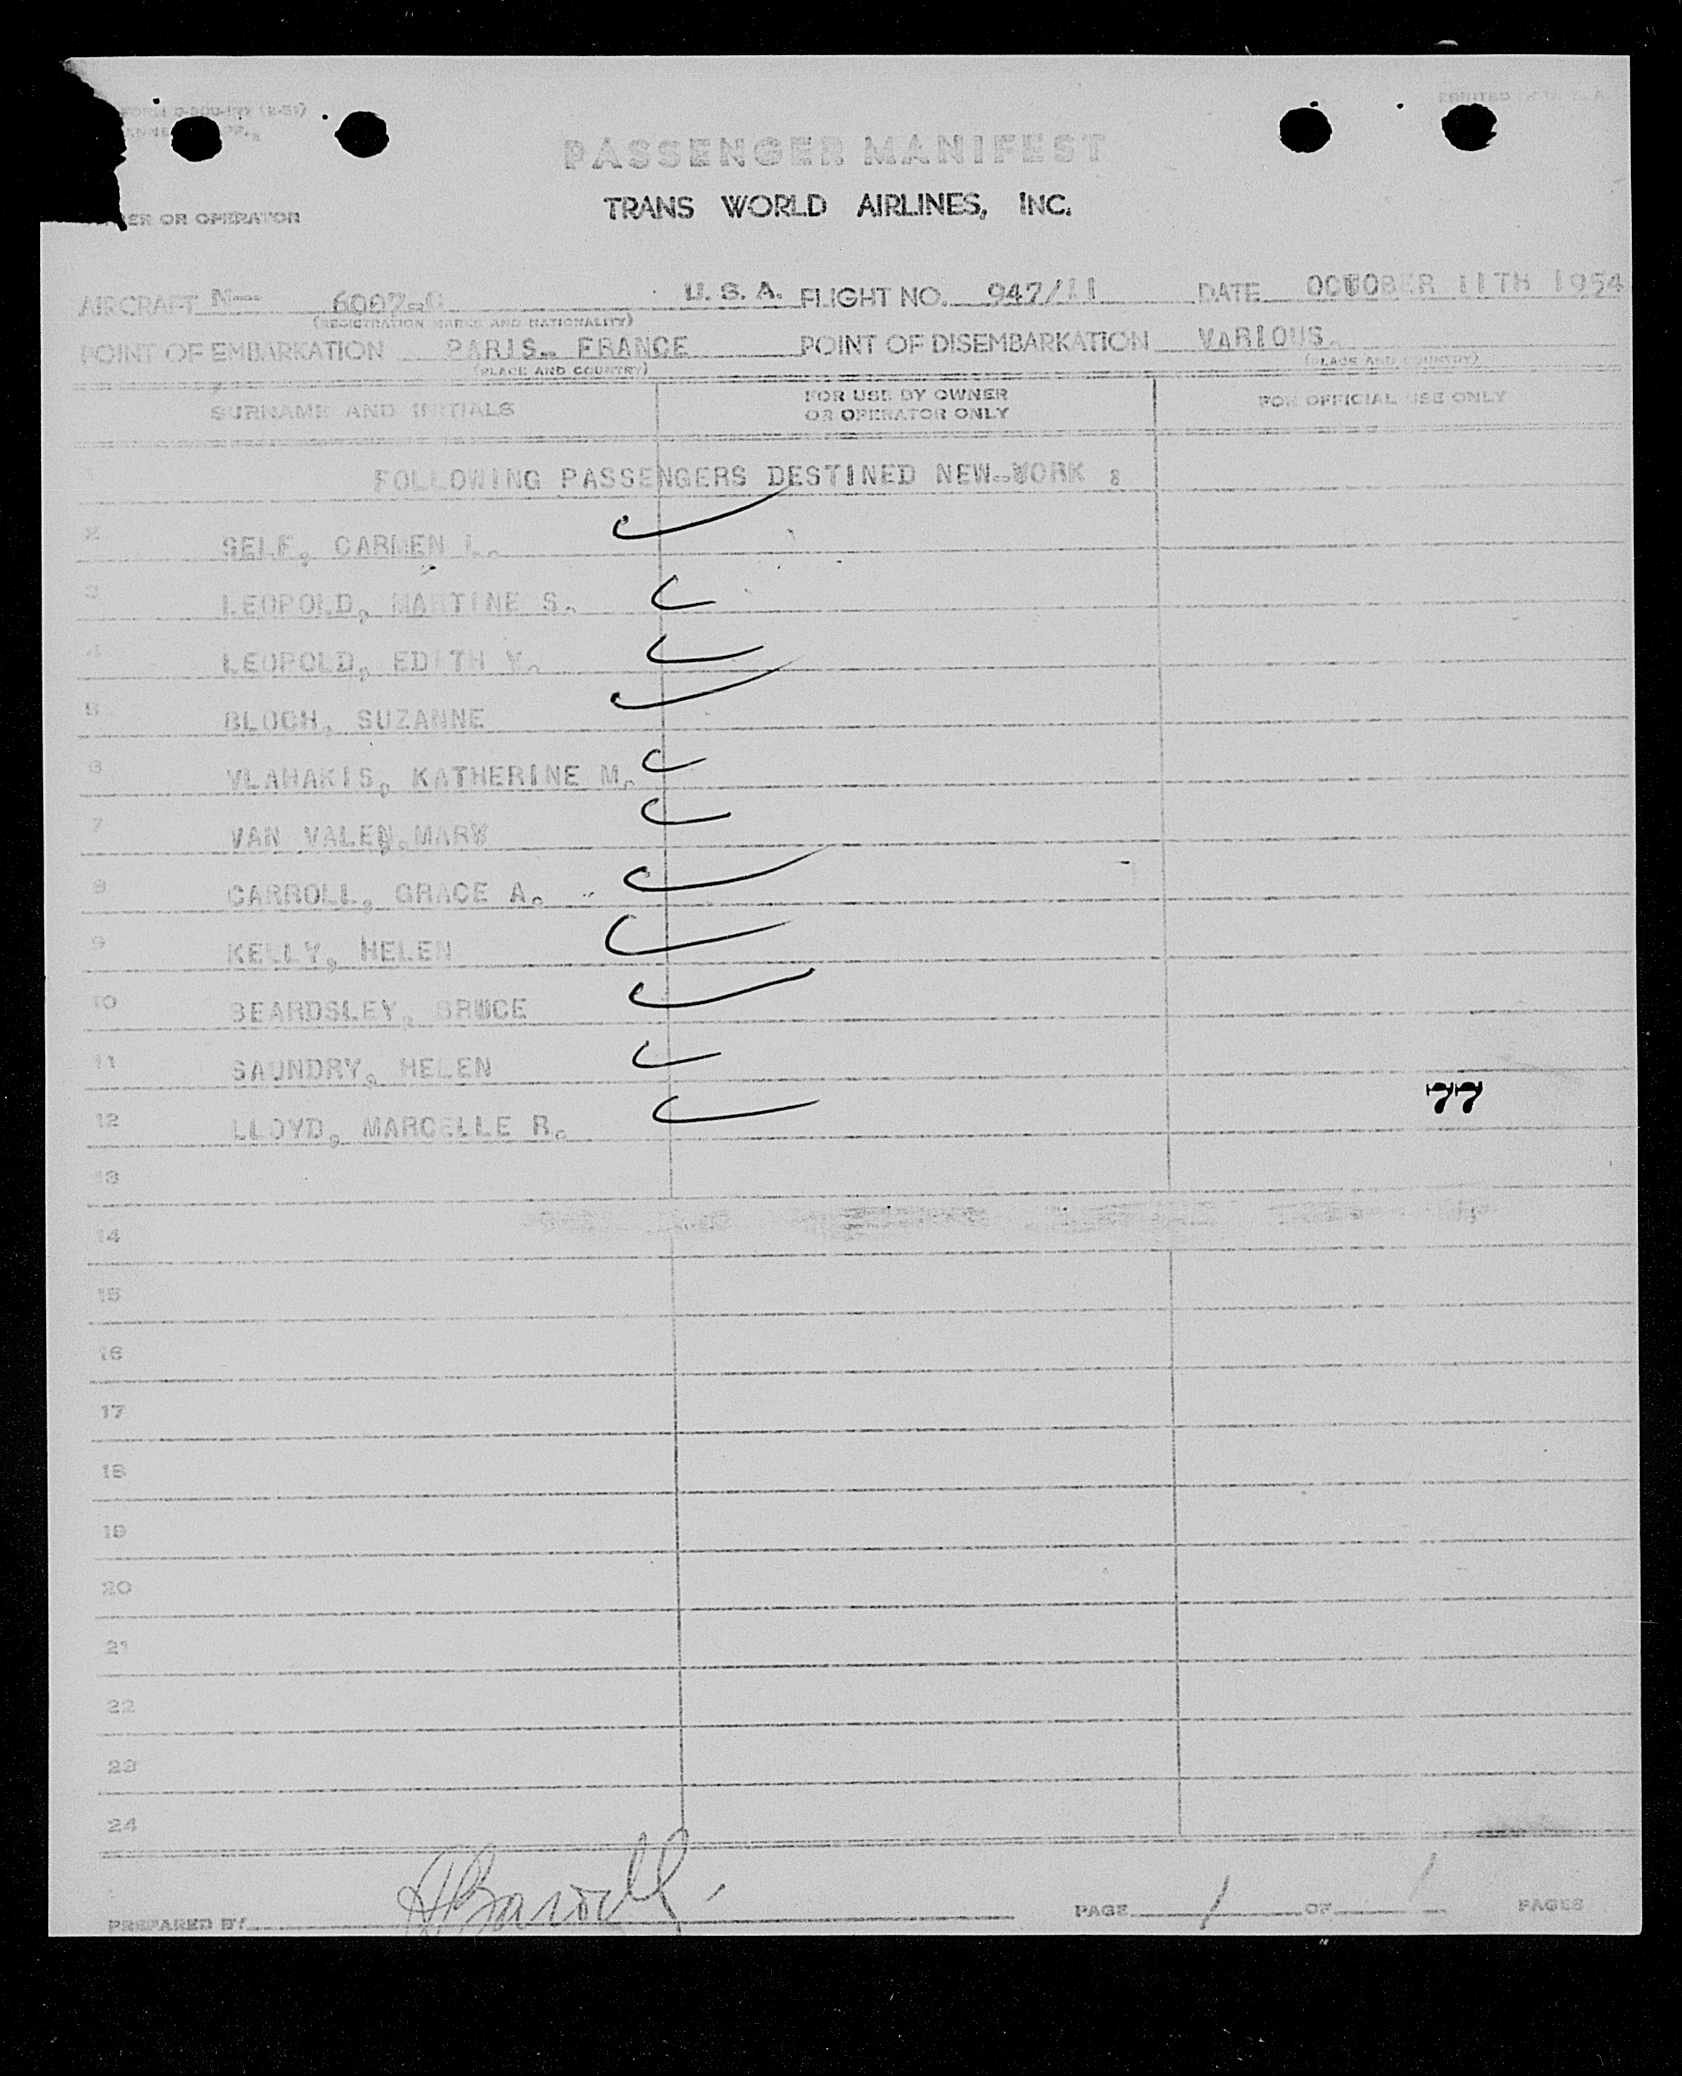 PASSENGER MANIFEST
TRANS WORLD AIRLINES, INC.
OR OPERATOR
AIRCRAFT N-- 6007-C U.S.A. FLIGHT NO. 947/11 DATE OCTOBER 11TH 1954
(REGISTRATION MARKS AND NATIONALITY)
POINT OF EMBARKATION PARIS- FRANCE POINT OF DISEMBARKATION VARIOUS.
(PLACE AND COUNTRY) (PLACE AND COUNTRY)
SURNAME AND INITIALS FOR USE BY OWNER OR OPERATOR ONLY FOR OFFICIAL USE ONLY
FOLLOWING PASSENGERS DESTINED NEW-YORK :
2 SELF, CARMEN L.
3 LEOPOLD, MARTINE S.
4 LEOPOLD, EDITH Y.
5 BLOCH, SUZANNE
6 VLAHAKIS, KATHERINE M.
7 VAN VALEN, MARY
8 CARROLL, GRACE A.
9 KELLY, HELEN
10 BEARDSLEY, BRUCE
11 SAUNDRY, HELEN
77
12 LLOYD, MARCELLE R.
13
14
15
16
17
18
19
20
21
22
23
24
PREPARED BY PAGE 1 OF 1 PAGES